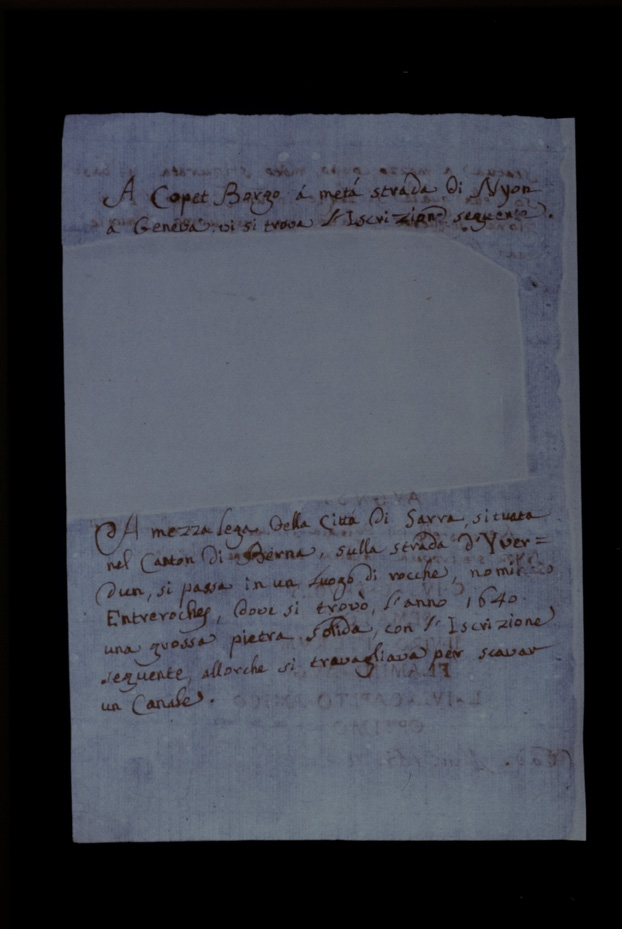 A Copet Borgo á metá strada di Nyon
a Geneva vi si trova l'Iscrizione seguente.
A mezza lega della Cittá di Sarra, situata
nel Canton di Berna, sulla strada d'Yver=
dun, si passa in un Luogo di rocche,
Entreroches, dove si trovò, l'anno 1640.
una grossa pietra solida, con l'Iscrizione
seguente, allorche si travagliava per scavar
un Canale.